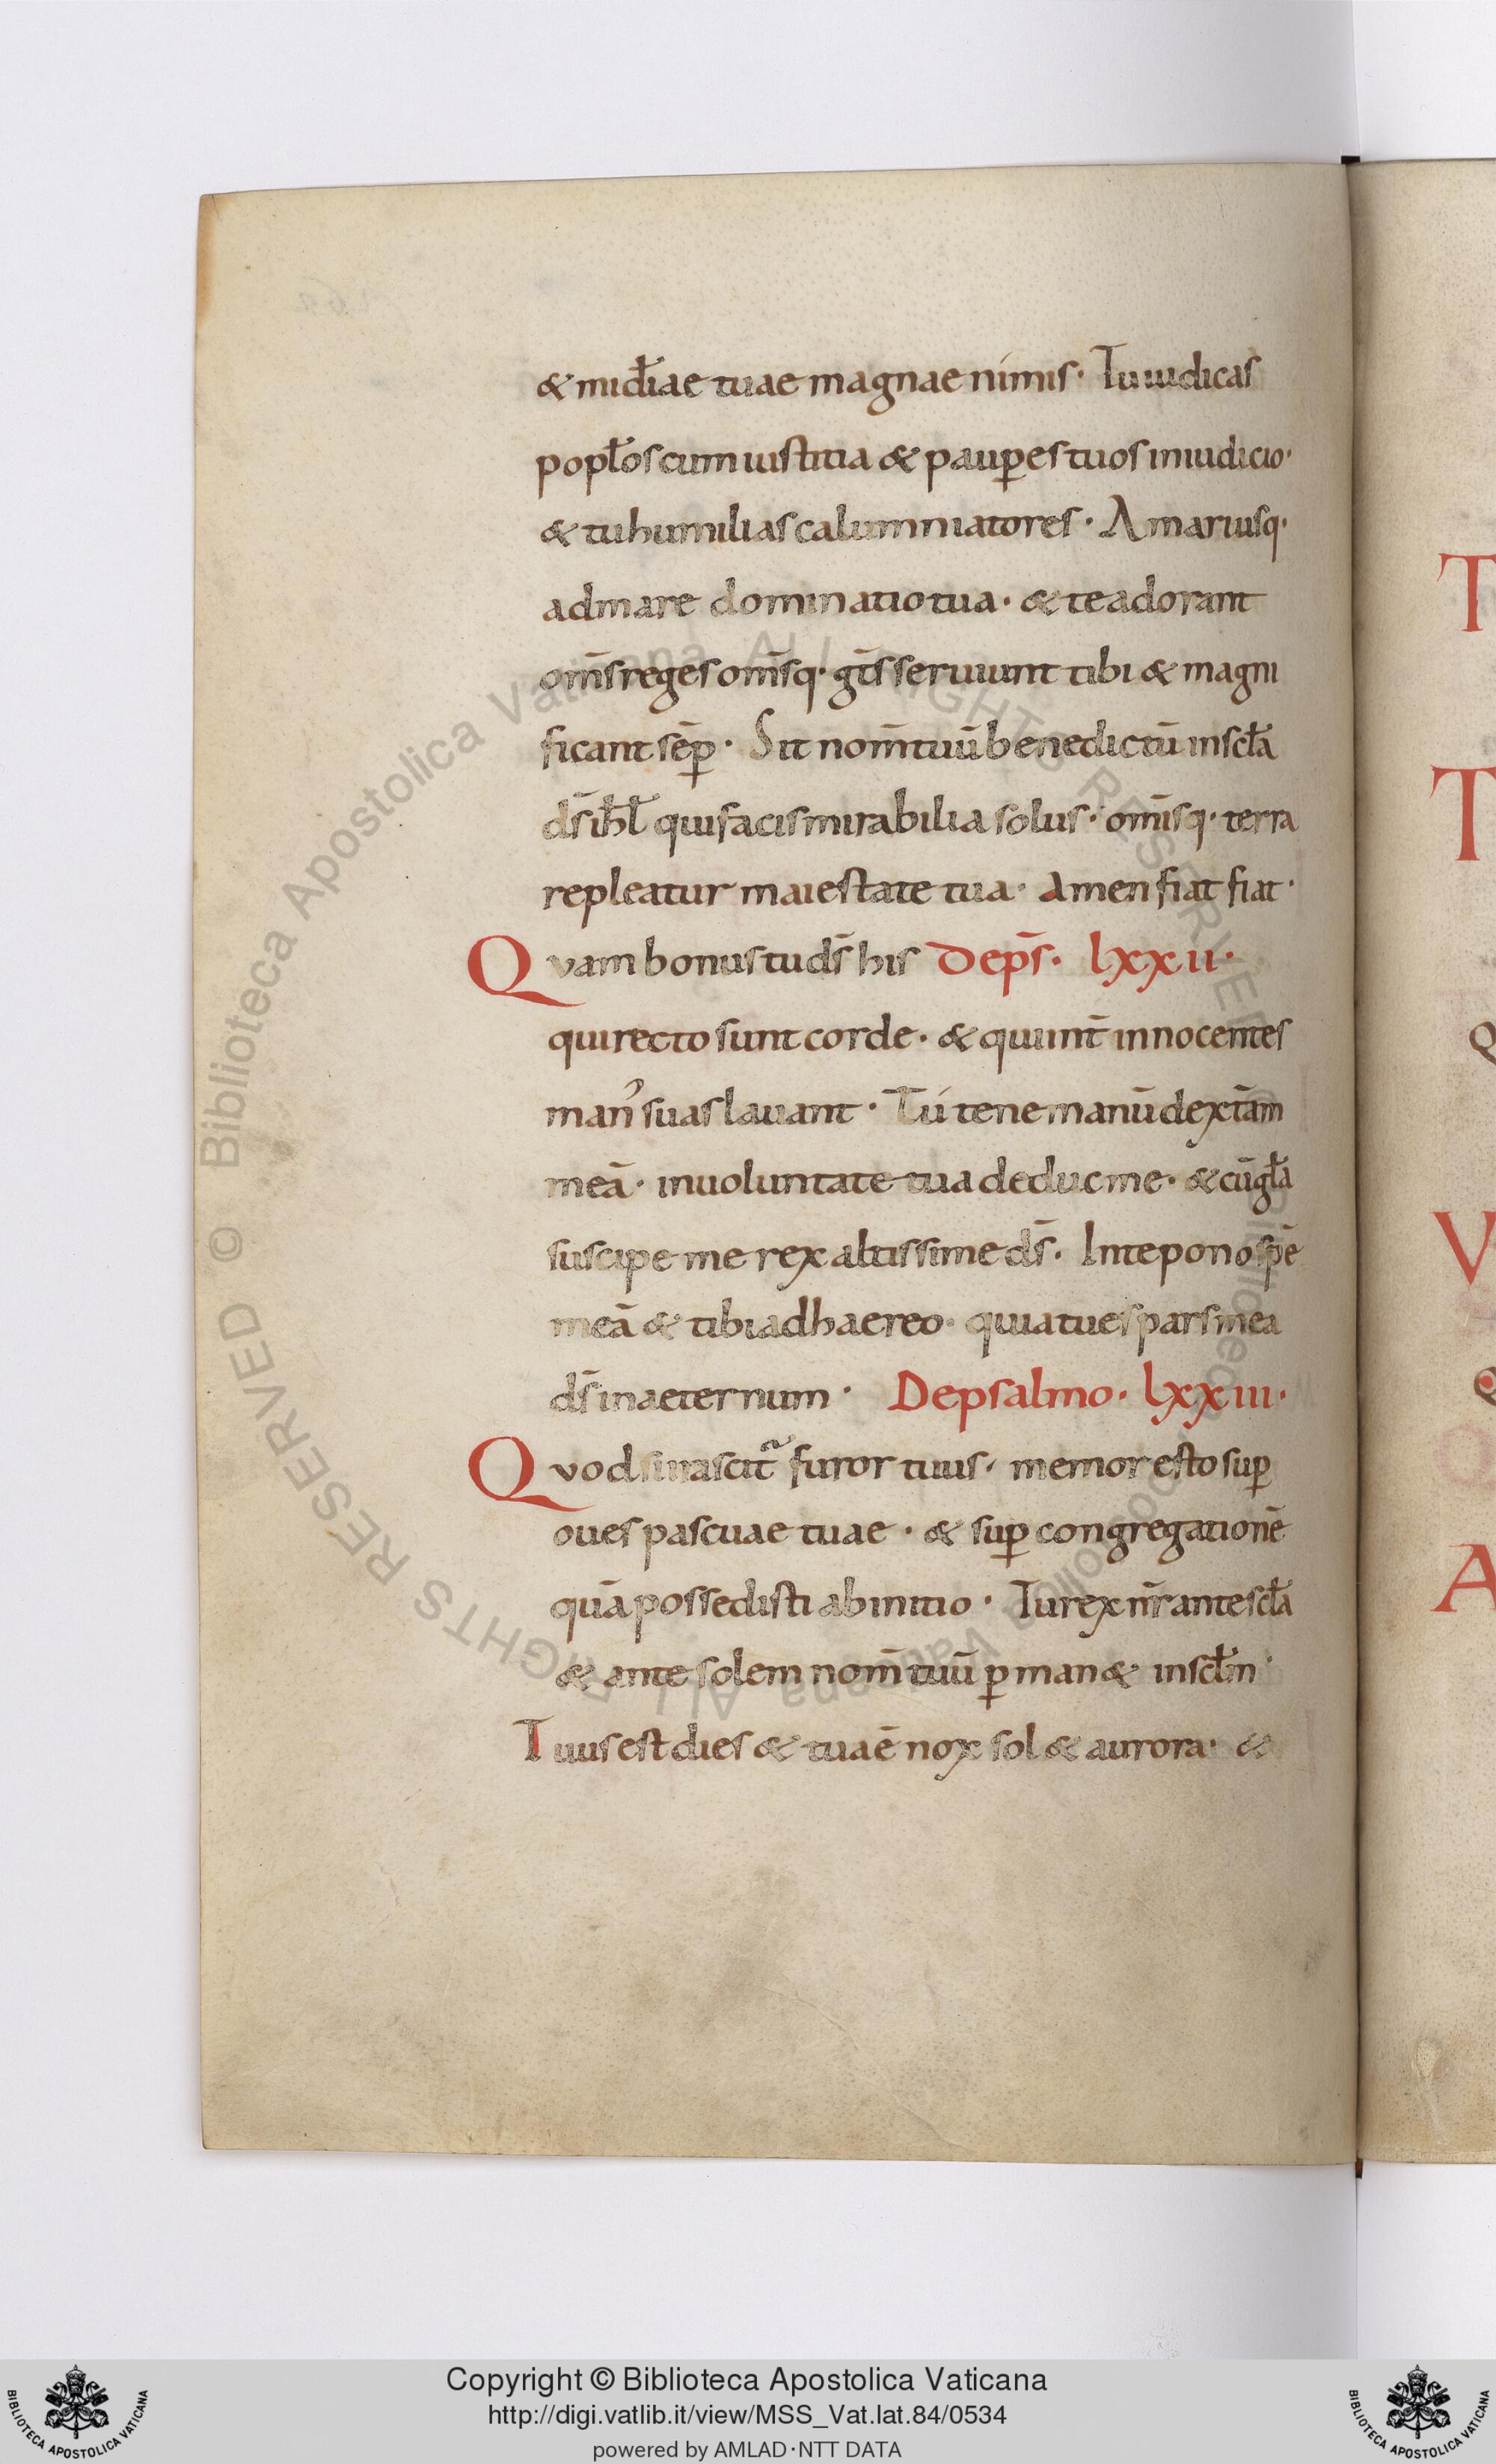 & mīd̄iae tuae magnae nimis· Tu iudicas
popl̄os cum iustitia & paup̄es tuos in iudicio·
& tu humilias calumniatores· A mariusq·
ad mare dominatio tua· & te adorant
om̄s reges om̄sq· gīs seruiunt tibi & magni
ficant sēp̄· Sit nom̄ tuū benedictū in scl̄a
ds̄ ihl̄ qui facis mirabilia solus· om̄isq· terra
repleatur maiestate tua· Amen fiat fiat·
Quam bonus tu ds̄ his De ps̄· lxxii·
qui recto sunt corde· & qui int̄ innocentes
man᾿ suas lauant· Tú tene manū dext̄am
meā· in uoluntate tua deduc me· & cū gl̄a
suscipe me rex altissime ds̄· In te pono spē
meā & tibi adhaereo· quia tu es pars mea
ds̄ in aeternum· De psalmo· lxxiii·
Quod si irascit̄ furor tuus· memor esto sup̄
oues pascuae tuae· & sup̄ congregationē
quā possedisti ab initio· Tu rex nr̄ ante scl̄a
& ante solem nom̄ tuū p̄man& in scl̄m·
Tuus est dies & tua ē nox sol & aurora· &
© Biblioteca Apostolica Vaticana ALL RIGHTS RESERVED
© Biblioteca Apostolica Vaticana ALL RIGHTS RESERVED
T
T
V
A
BIBLIOTECA APOSTOLICA VATICANA
Copyright © Biblioteca Apostolica Vaticana
http://digi.vatlib.it/view/MSS_Vat.lat.84/0534
powered by AMLAD·NTT DATA
BIBLIOTECA APOSTOLICA VATICANA